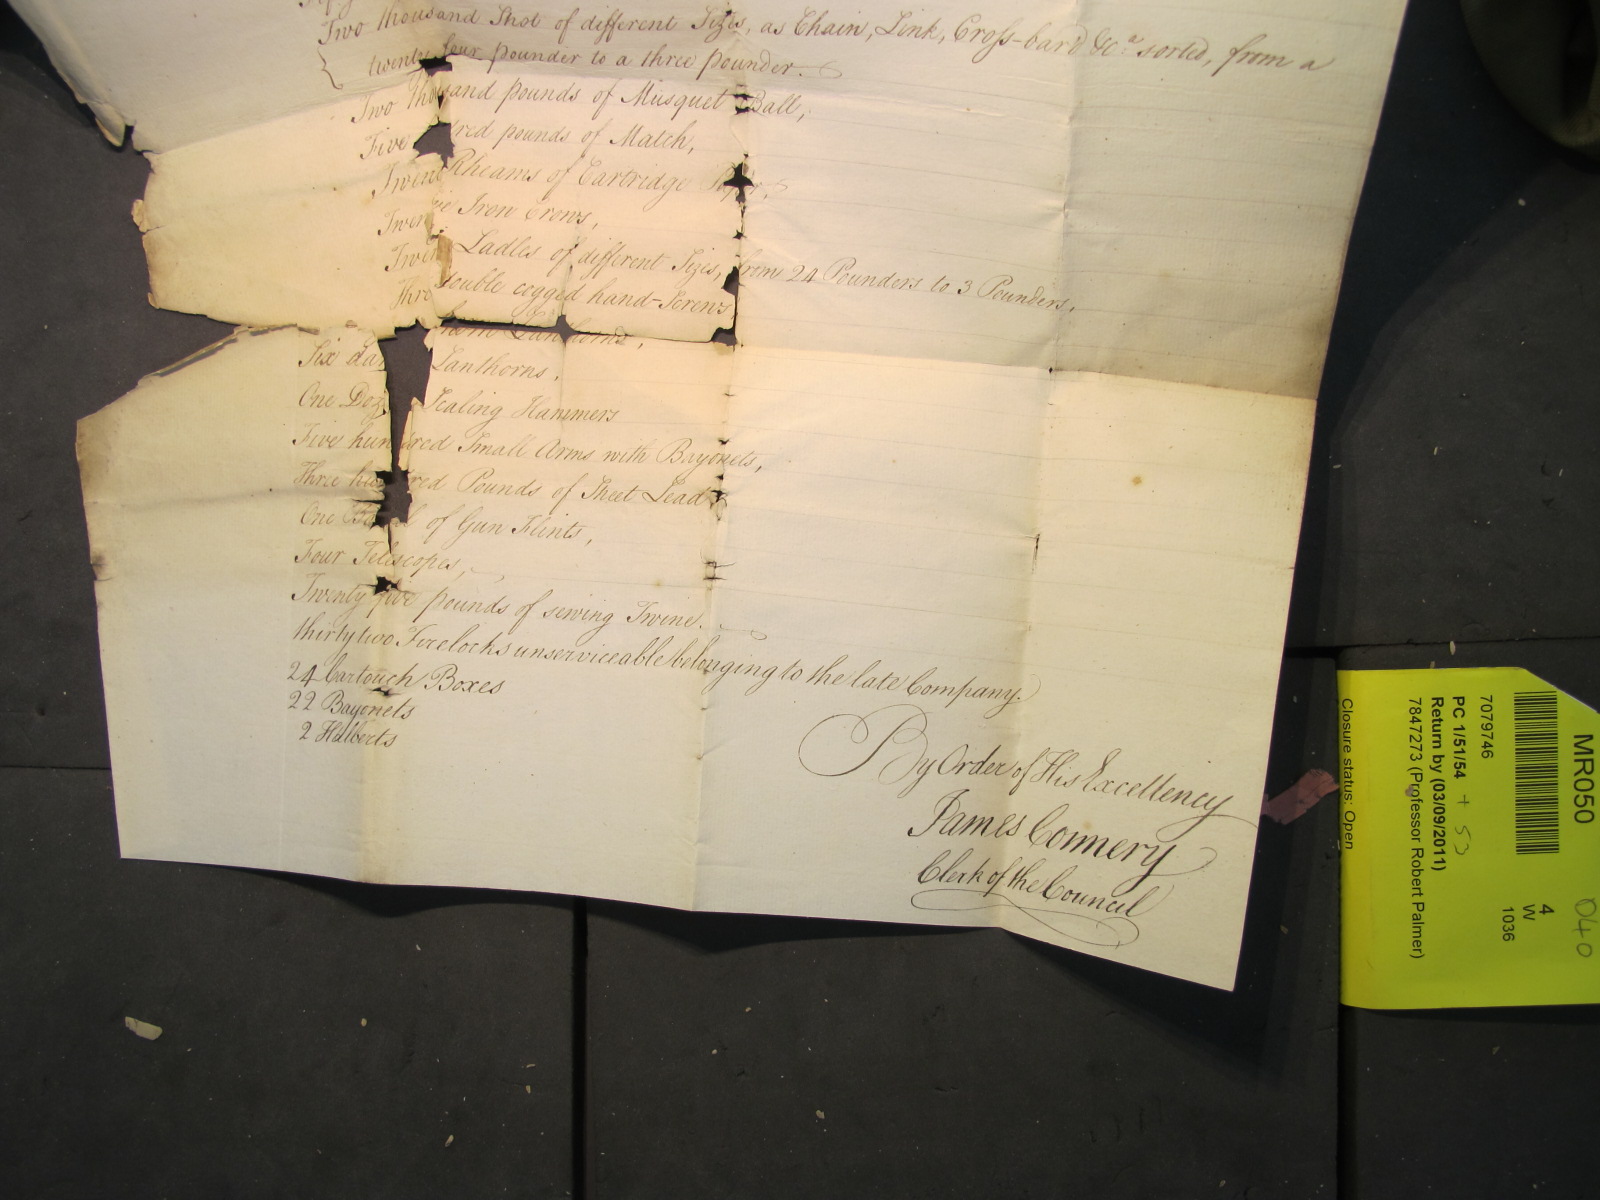 Two thousand Shot of different Sizes, as Chain, Link, Cross-bar'd &c.a sorted, from a
twenty four pounder to a three pounder.
Two thousand pounds of Musquet Ball,
Five dred pounds of Match,
Twen Rheams of Cartridge Paper,
Twen ve Iron Crows,
Twen Ladles of different Sizes, from 24 Pounders to 3 Pounders.
Thre double cogged hand-Screws,
Lanthorns,
Six dar Lanthorns,
One Doz Scaling Hammers
Five hundred Small Arms with Bayonets,
Three hundred Pounds of Sheet Lead
One of Gun Flints,
Four Telescopes,
Twenty five pounds of sewing Twine.
thirty two Firelocks unserviceable belonging to the late Company.
24 Cartouch Boxes
22 Bayonets
2 Halberts
By Order of His Excellency
James Connery
Clerk of the Council
MR050
040
4
W
1036
7079746
PC 1/51/54 + 53
Return by (03/09/2011)
7847273 (Professor Robert Palmer)
Closure status: Open